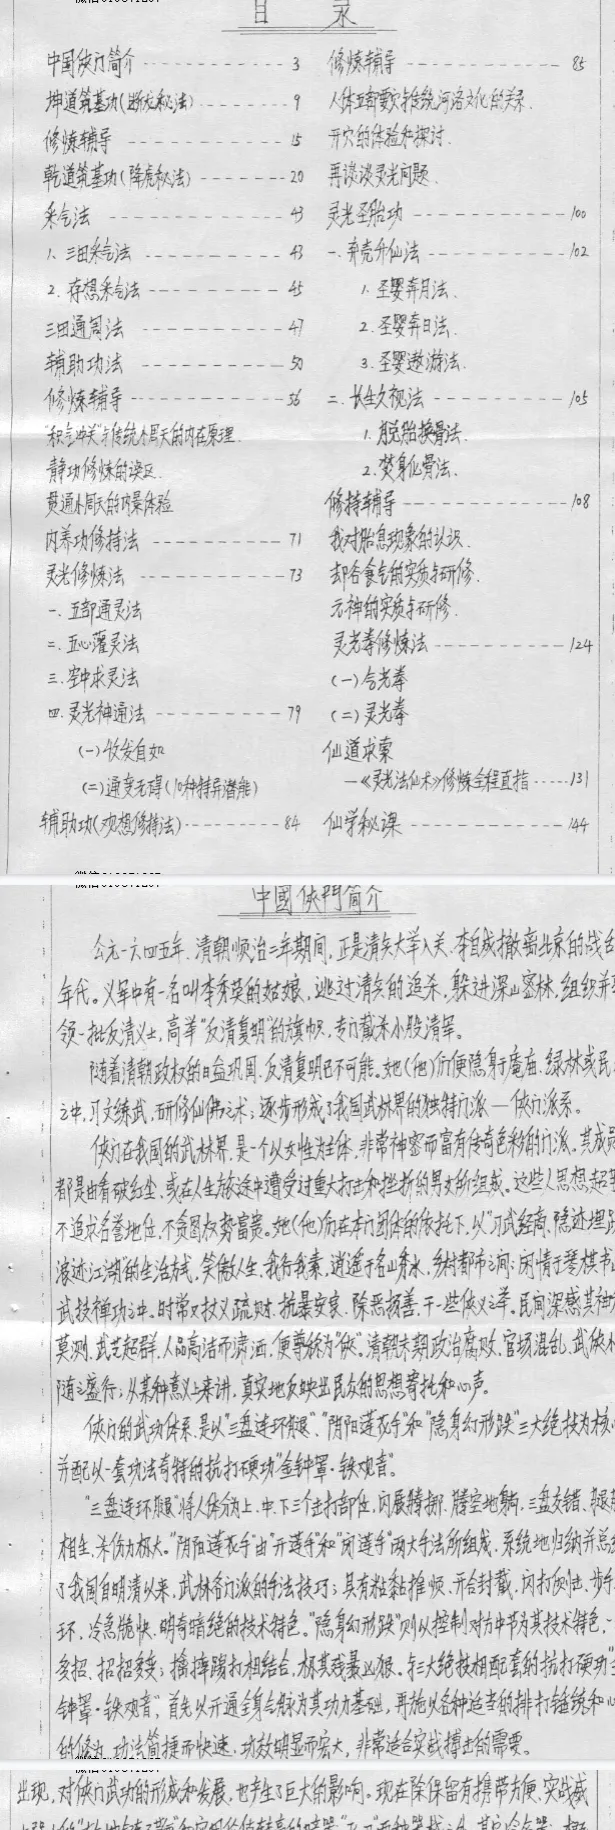 目 录
中国侠门简介 ---------- 3
坤道筑基功(断龙秘法) ------ 9
修炼辅导 ---------- 15
乾道筑基功(降虎秘法) ------ 20
采气法 ---------- 43
1. 三田采气法 ---------- 43
2. 存想采气法 ---------- 45
三田通周法 ---------- 47
辅助功法 ---------- 50
修炼辅导 ---------- 56
“积气冲关”与传统小周天的内在原理.
静功修炼的误区.
贯通小周天的内景体验
内养功修持法 ---------- 71
灵光修炼法 ---------- 73
一. 五部通灵法
二. 五心灌灵法
三. 空中求灵法
四. 灵光神通法 ---------- 79
(一)收发自如
(二)通变无碍(10种特异潜能)
辅助功(观想修持法) ---------- 84
修炼辅导 ---------- 85
人体与传统河洛文化的关系.
开穴的体验和探讨.
再谈谈灵光问题.
灵光圣胎功 ---------- 100
一. 弃壳升仙法 ---------- 102
1. 圣婴奔月法.
2. 圣婴奔日法.
3. 圣婴遨游法.
二. 长生久视法 ---------- 105
1. 脱胎换骨法.
2. 焚身化骨法.
修持辅导 ---------- 108
我对胎息现象的认识.
却谷食气的实质与研修.
元神的实质与研修.
灵光拳修炼法 ---------- 124
(一)合光拳
(二)灵光拳
仙道求索
—《灵光法仙术》修炼全程直指 ----- 131
仙学秘课 ---------- 144
中國侠門简介
公元一六四五年, 清朝顺治二年期间, 正是清兵大举入关、李自成撤离北京的战乱
年代。义军中有一名叫李秀英的姑娘, 逃过清兵的追杀, 躲进深山密林, 组织并
领一批反清义士, 高举“反清复明”的旗帜, 专门截杀小股清军。
随着清朝政权的日益巩固, 反清复明已不可能。她(他)们便隐身于庵庙、绿林或民
之中, 习文练武, 研修仙佛之术; 逐步形成了我国武林界的独特门派—侠门派系。
侠门在我国的武林界, 是一个以女性为主体, 非常神密而富有传奇色彩的门派。其成员
都是由看破红尘, 或在人生旅途中遭受过重大打击和挫折的男女所组成。这些人思想超
不追求名誉地位, 不贪图权势富贵。她(他)们在本门团体的依托下, 以“习武经商, 隐迹埋
滚迹江湖”的生活方式, 笑傲人生, 我行我素, 逍遥于名山秀水, 乡村都市之间; 闲情于琴棋书
武技禅功之中。时常又仗义疏财, 抗暴安良, 除恶扬善, 干一些侠义之举。民间深感其神
莫测, 武艺超群, 人品高洁而潇洒, 便尊称为“侠”。清朝末期政治腐败, 官场混乱, 武侠小
随之盛行; 从某种意义上来讲, 真实地反映出民众的思想寄托和心声。
侠门的武功体系, 是以“三盘连环腿”、“阴阳莲花手”和“隐身幻形跌”三大绝技为核
并配以一套功法奇特的抗打硬功“金钟罩·铁观音”。
“三盘连环腿”将人体分为上、中、下三个击打部位, 闪展腾挪, 腾空地躺, 三盘交错, 腿
相生, 杀伤力极大。“阴阳莲花手”由“开莲手”和“闭莲手”两大手法所组成, 系统地归纳并总
了我国自明清以来, 武林各门派的手法技巧; 具有粘黏推烦、开合封截、闪打侧击、步手
环、冷急脆快、明奇暗绝的技术特色。“隐身幻形跌”则以控制对方中节为其技术特色, 一
多招, 招招多变; 擒摔踢打相结合, 极其残暴凶狠。与三大绝技相配套的抗打硬功“
钟罩·铁观音”, 首先以开通全身气脉为其功力基础, 再施以各种
的修为, 功法简捷而快速, 功效明显而宏大, 非常适合实战搏击的需要。
出现, 对侠门武功的形成和发展, 也产生了巨大的影响。现在除保留有携带方便, 实战威